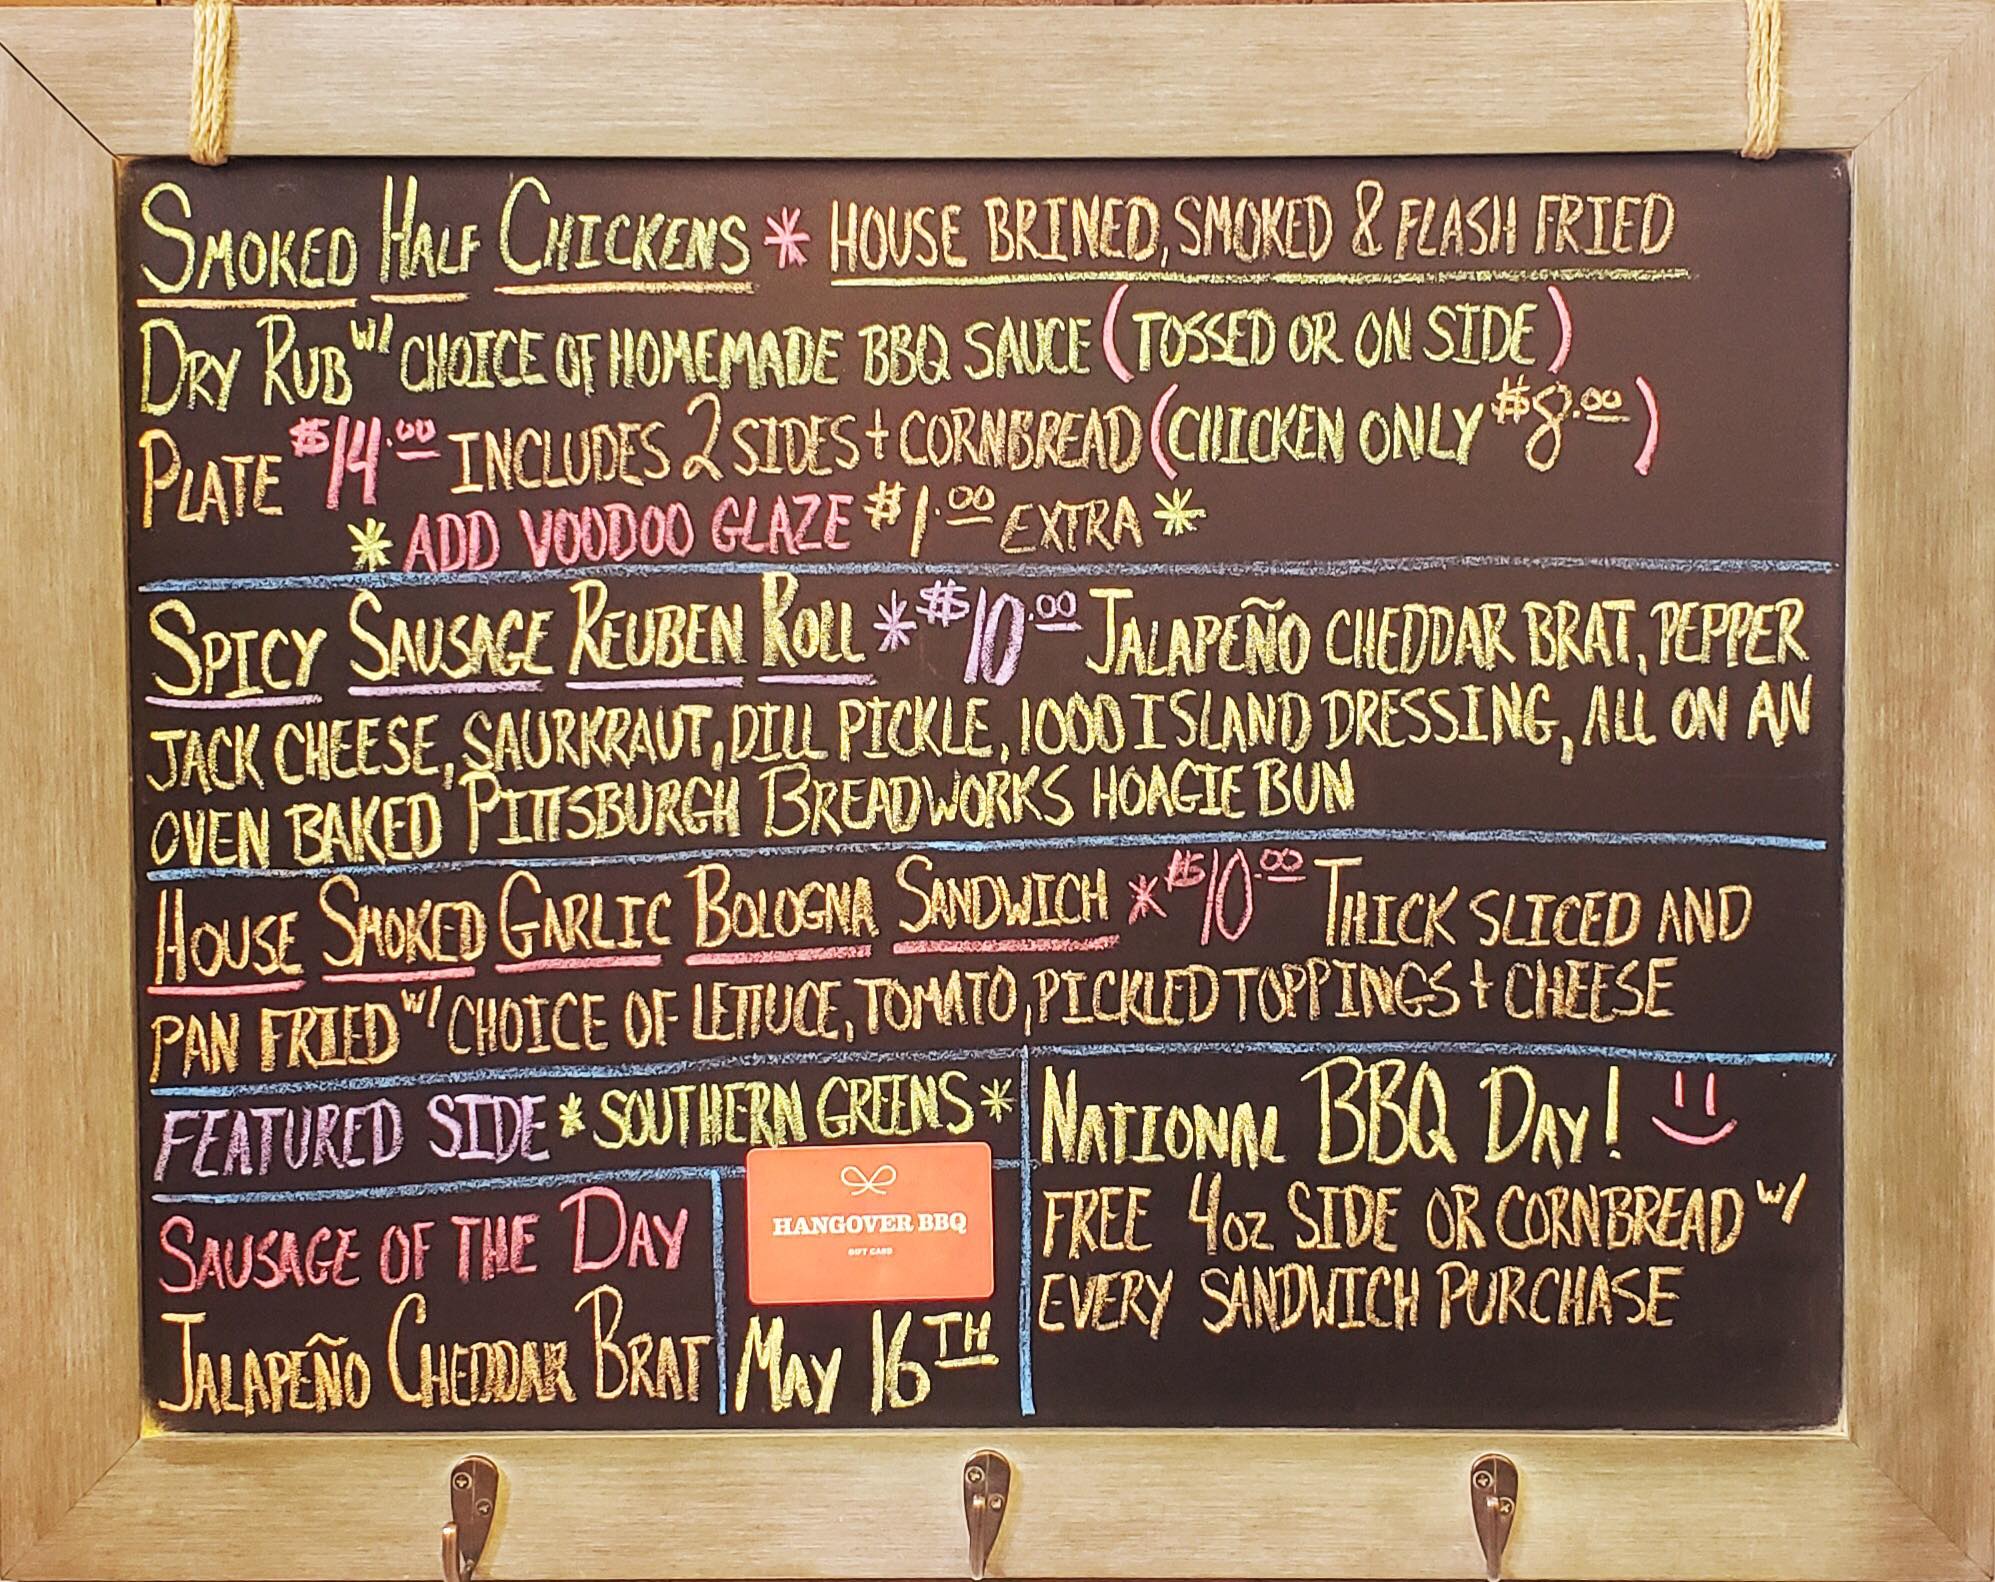 SMOKED HALF CHICKENS * HOUSE BRINED, SMOKED & FLASH FRIED
DRY RUB W/ CHOICE OF HOMEMADE BBQ SAUCE (TOSSED OR ON SIDE)
PLATE $14.00 INCLUDES 2 SIDES + CORNBREAD (CHICKEN ONLY $8.00)
* ADD VOODOO GLAZE $1.00 EXTRA *
SPICY SAUSAGE REUBEN ROLL * $10.00 JALAPEÑO CHEDDAR BRAT, PEPPER
JACK CHEESE, SAURKRAUT, DILL PICKLE, 1000 ISLAND DRESSING, ALL ON AN
OVEN BAKED PITTSBURGH BREADWORKS HOAGIE BUN
HOUSE SMOKED GARLIC BOLOGNA SANDWICH * $10.00 THICK SLICED AND
PAN FRIED W/ CHOICE OF LETTUCE, TOMATO, PICKLED TOPPINGS + CHEESE
FEATURED SIDE * SOUTHERN GREENS *
SAUSAGE OF THE DAY
JALAPEÑO CHEDDAR BRAT
HANGOVER BBQ
GIFT CARD
MAY 16TH
NATIONAL BBQ DAY!
FREE 4OZ SIDE OR CORNBREAD W/
EVERY SANDWICH PURCHASE